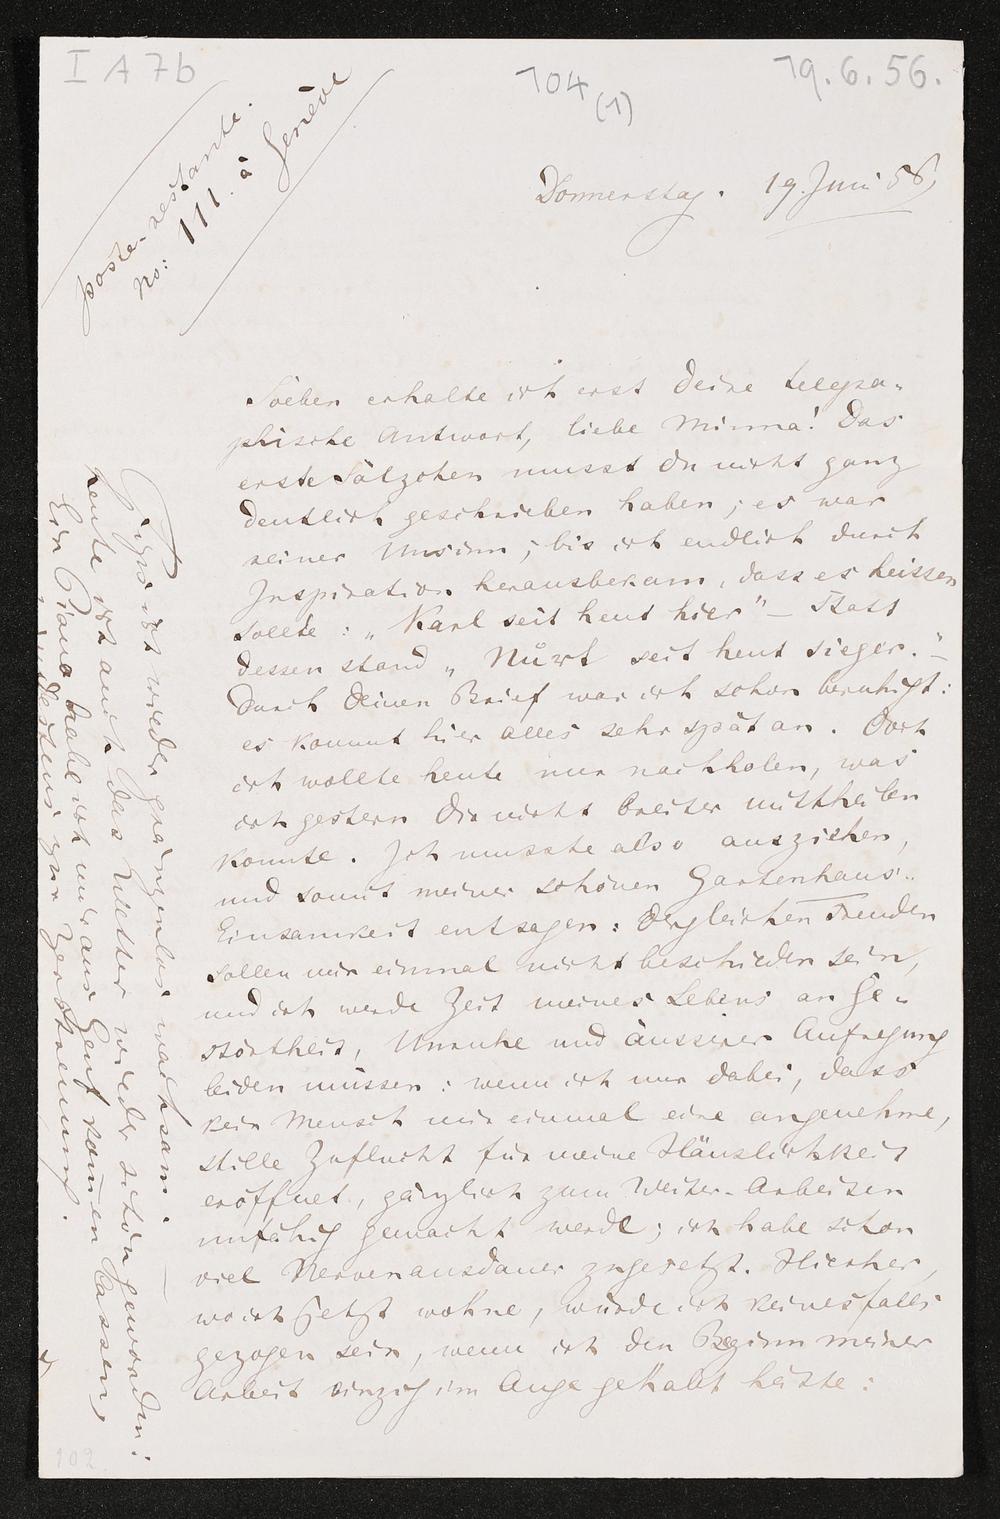 I A 7b
104
(1)
19.6.56.
poste-restante.
No: 111. à Genève
Donnerstag. 19. Juni 56,
Soeben erhalte ich erst Deine telegra-
phische Antwort, liebe Minna! Das
erste Sätzchen musst Du nicht ganz
deutlich geschrieben haben; es war
reiner Unsinn; bis ich endlich durch
Inspiration herausbekam, dass es heissen
sollte: „Karl seit heut hier" – Statt
dessen stand „Nurt seit heut sieger." –
Durch Deinen Brief war ich schon beruhigt:
es kommt hier alles sehr spät an. Doch
ich wollte heute nur nachholen, was
ich gestern Dir nicht breiter mittheilen
konnte. Ich musste also ausziehen,
und somit meiner schönen Gartenhaus-
Einsamkeit entsagen: dergleichen Freuden
sollen mir einmal nicht beschieden sein,
und ich werde Zeit meines Lebens an Ge-
störtheit, Unruhe und äusserer Aufregung
leiden müssen: wenn ich nur dabei, dass
kein Mensch mir einmal eine angenehme,
stille Zuflucht für meine Häuslichkeit
eröffnet, gänzlich zum Weiter-Arbeiten
unfähig gemacht werde; ich habe schon
viel Nervenausdauer zugesetzt. Hierher,
wo ich jetzt wohne, würde ich keinesfalls
gezogen sein, wenn ich den Beginn meiner
Arbeit einzig im Auge gehabt hätte:
Fips ist wieder grenzenlos wachsam. –
heute ist auch das Wetter wieder schön geworden:
Ein Piano habe ich mir aus Genf kommen lassen,
mindestens zur Zerstreuung.
102